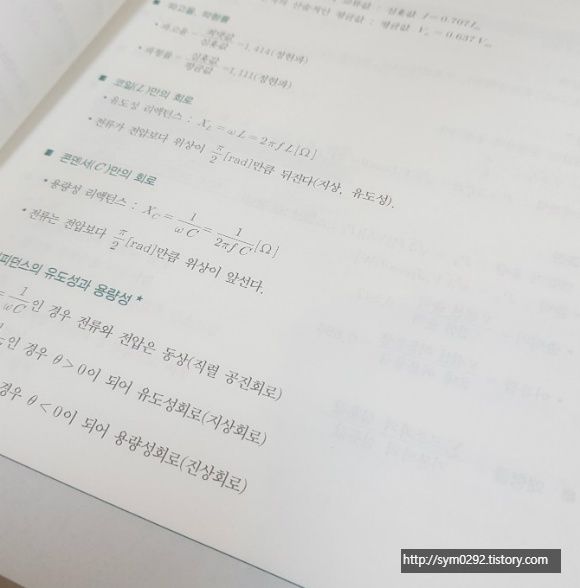 교류값 : 실횻값 I = 0.707 I_m
산술적인 평균값 : 평균값 V_a = 0.637 V_m
■ 파고율, 파형률
• 파고율 = 최댓값/실횻값 = 1.414(정현파)
• 파형률 = 실횻값/평균값 = 1.111(정현파)
■ 코일(L)만의 회로
• 유도성 리액턴스 : X_L = ωL = 2πfL[Ω]
• 전류가 전압보다 위상이 π/2[rad]만큼 뒤진다(지상, 유도성).
■ 콘덴서(C)만의 회로
• 용량성 리액턴스 : X_C = 1/ωC = 1/2πfC[Ω]
• 전류는 전압보다 π/2[rad]만큼 위상이 앞선다.
피던스의 유도성과 용량성 *
= 1/ωC인 경우 전류와 전압은 동상(직렬 공진회로)
인 경우 θ > 0이 되어 유도성회로(지상회로)
경우 θ < 0이 되어 용량성회로(진상회로)
http://sym0292.tistory.com